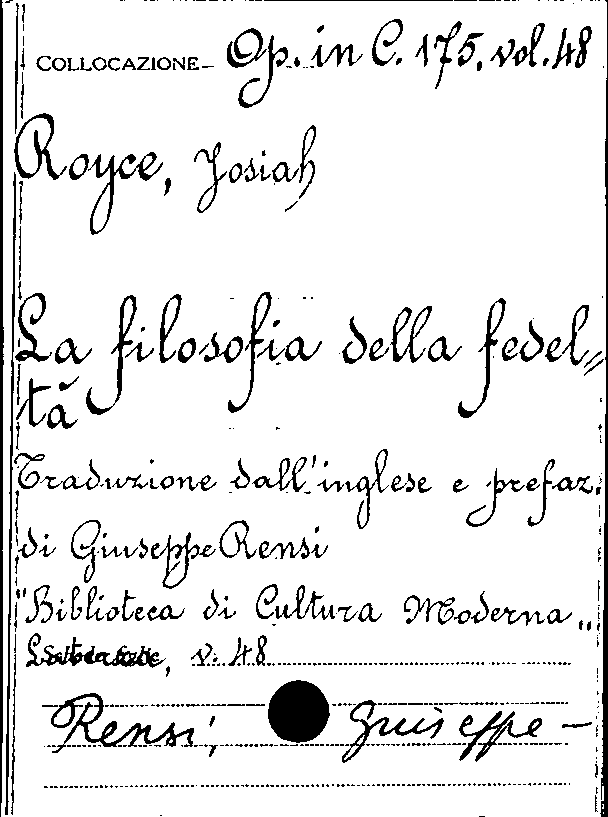 COLLOCAZIONE Op. in C. 175. vol. 48
Royce, Josiah
La filosofia della fedel=
tà
Traduzione dall'inglese e prefaz.
di Giuseppe Rensi
"Biblioteca di Cultura Moderna„
v. 48
Rensi, Giuseppe